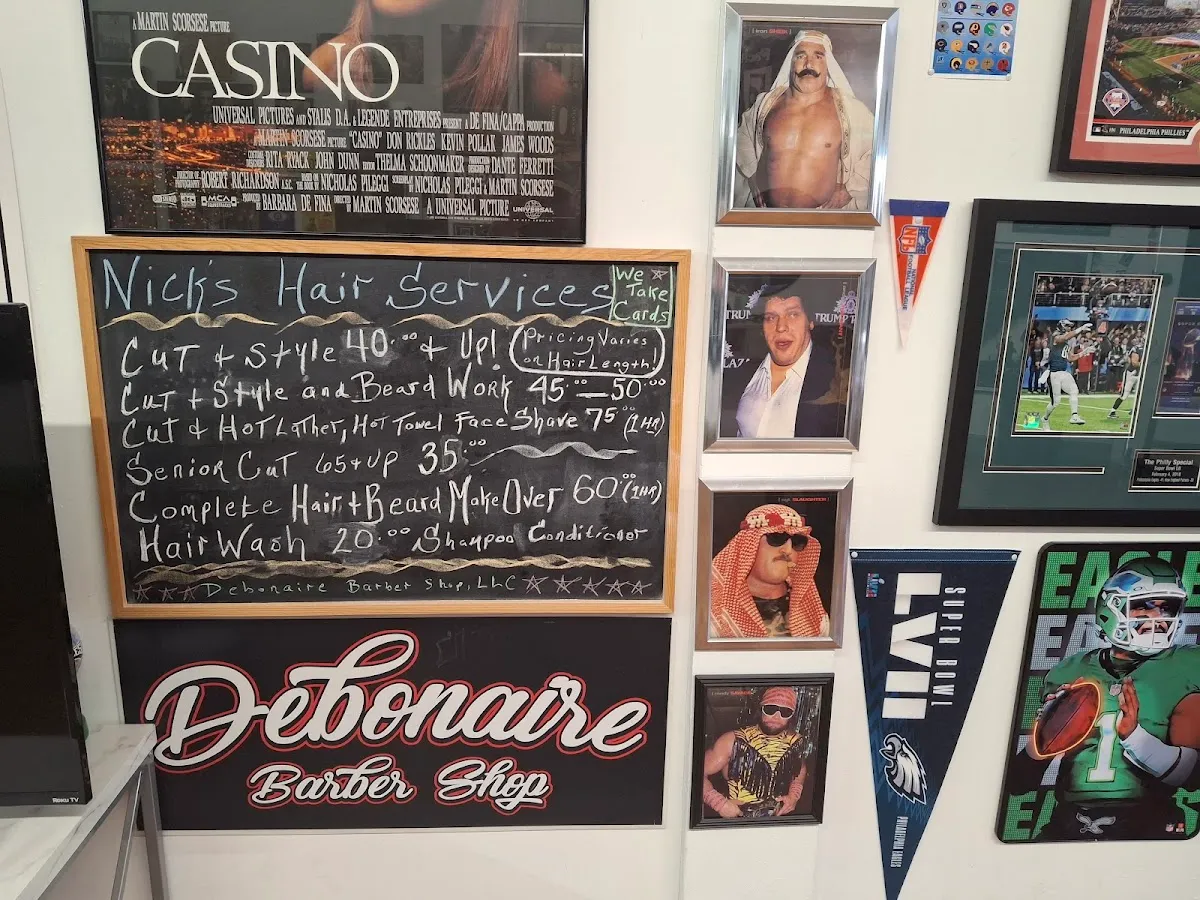 A MARTIN SCORSESE PICTURE
CASINO
UNIVERSAL PICTURES AND SYALIS D.A. & LEGENDE ENTREPRISES PRESENT A DE FINA/CAPPA PRODUCTION
MARTIN SCORSESE PICTURE "CASINO" DON RICKLES KEVIN POLLAK JAMES WOODS
RITA RYACK JOHN DUNN THELMA SCHOONMAKER DANTE FERRETTI
DIRECTOR OF PHOTOGRAPHY ROBERT RICHARDSON, A.S.C. BASED ON THE BOOK BY NICHOLAS PILEGGI SCREENPLAY BY NICHOLAS PILEGGI & MARTIN SCORSESE
MCA
PRODUCED BY BARBARA DE FINA DIRECTED BY MARTIN SCORSESE A UNIVERSAL PICTURE
UNIVERSAL
Nick's Hair Services
We
Take
Cards
Cut + Style 40.00 + Up!
(Pricing Varies
on Hair Length!)
Cut + Style and Beard Work 45.00 — 50.00
Cut & Hot Lather, Hot Towel Face Shave 75.00 (1HR)
Senior Cut 65+up 35.00
Complete Hair + Beard MakeOver 60.00 (1HR)
Hair Wash 20.00 Shampoo Conditionor
Debonaire Barber Shop, LLC
Debonaire
Barber Shop
Roku TV
SHEIK
TRUMP
TRUMP
SLAUGHTER
NFL
PHILADELPHIA PHILLIES
The Philly Special
Super Bowl LII
February 4, 2018
SUPER BOWL
LVII
PHILADELPHIA EAGLES
EAGLES
1